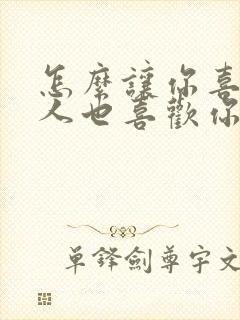 怎麼讓你喜
人也喜歡你
單鋒劍尊宇文